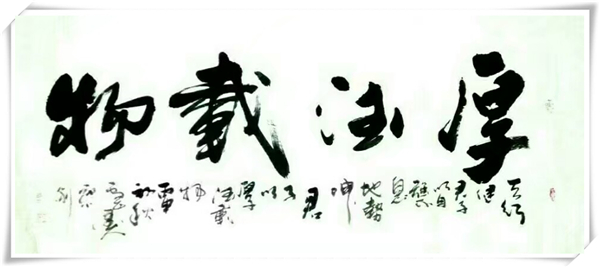 厚德載物
天行
健
君子
以自
強不
息
地勢
坤
君
子
以
厚
德載
物
初秋